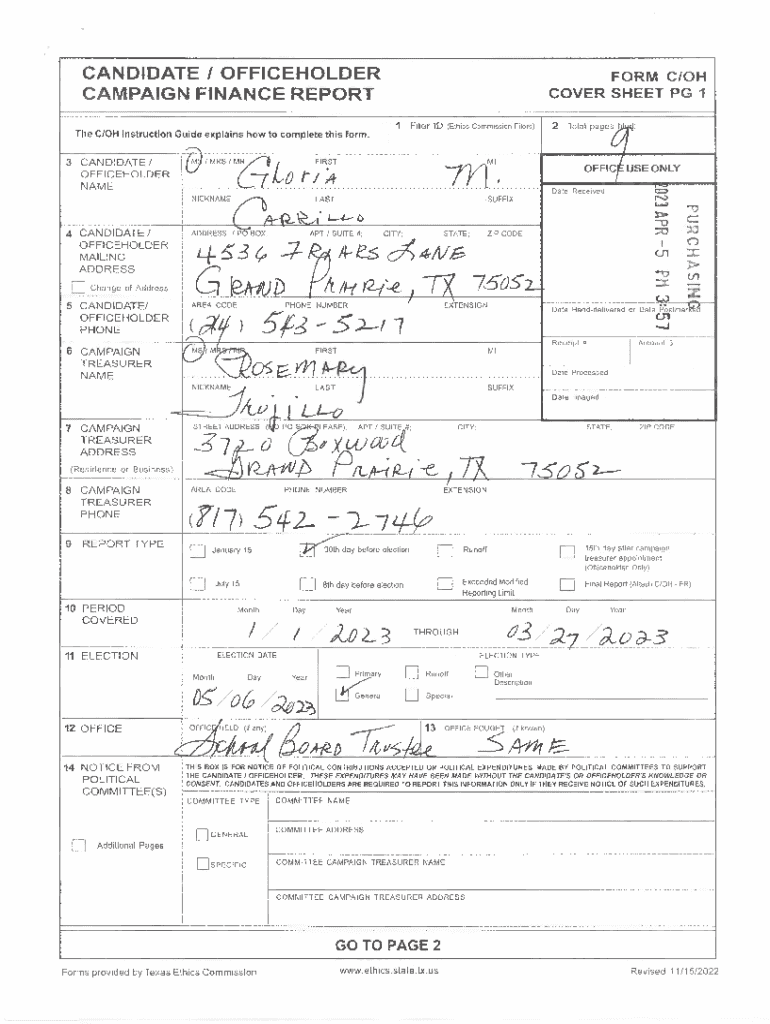 CANDIDATE / OFFICEHOLDER
CAMPAIGN FINANCE REPORT
FORM C/OH
COVER SHEET PG 1
The C/OH Instruction Guide explains how to complete this form.
1 Filer ID (Ethics Commission Filers)
2 Total pages filed:
9
3 CANDIDATE / OFFICEHOLDER NAME
MS / MRS / MR FIRST MI
Gloria M.
NICKNAME LAST SUFFIX
CARRILLO
OFFICE USE ONLY
Date Received
PURCHASING
2023 APR -5 PM 3:57
4 CANDIDATE / OFFICEHOLDER MAILING ADDRESS
Change of Address
ADDRESS / PO BOX APT / SUITE #; CITY; STATE; ZIP CODE
4536 FRIARS LANE
GRAND PRAIRIE, TX 75052
5 CANDIDATE/ OFFICEHOLDER PHONE
AREA CODE PHONE NUMBER EXTENSION
(214) 543-5217
Date Hand-delivered or Date Postmarked
Receipt # Amount $
6 CAMPAIGN TREASURER NAME
MS / MRS / MR FIRST MI
ROSEMARY
NICKNAME LAST SUFFIX
TRUJILLO
Date Processed
Date Imaged
7 CAMPAIGN TREASURER ADDRESS
(Residence or Business)
STREET ADDRESS (NO PO BOX PLEASE); APT / SUITE #; CITY; STATE; ZIP CODE
3720 Boxwood
GRAND PRAIRIE, TX 75052
8 CAMPAIGN TREASURER PHONE
AREA CODE PHONE NUMBER EXTENSION
(817) 542-2746
9 REPORT TYPE
January 15
30th day before election
Runoff
15th day after campaign treasurer appointment (Officeholder Only)
July 15
8th day before election
Exceeded Modified Reporting Limit
Final Report (Attach C/OH - FR)
10 PERIOD COVERED
Month Day Year
1 / 1 / 2023
THROUGH
Month Day Year
03 / 27 / 2023
11 ELECTION
ELECTION DATE
Month Day Year
05 / 06 / 2023
ELECTION TYPE
Primary
Runoff
Other Description
General
Special
12 OFFICE
OFFICE HELD (if any)
School BOARD Trustee
13 OFFICE SOUGHT (if known)
SAME
14 NOTICE FROM POLITICAL COMMITTEE(S)
THIS BOX IS FOR NOTICE OF POLITICAL CONTRIBUTIONS ACCEPTED OR POLITICAL EXPENDITURES MADE BY POLITICAL COMMITTEES TO SUPPORT
THE CANDIDATE / OFFICEHOLDER. THESE EXPENDITURES MAY HAVE BEEN MADE WITHOUT THE CANDIDATE'S OR OFFICEHOLDER'S KNOWLEDGE OR
CONSENT. CANDIDATES AND OFFICEHOLDERS ARE REQUIRED TO REPORT THIS INFORMATION ONLY IF THEY RECEIVE NOTICE OF SUCH EXPENDITURES.
Additional Pages
COMMITTEE TYPE
GENERAL
SPECIFIC
COMMITTEE NAME
COMMITTEE ADDRESS
COMMITTEE CAMPAIGN TREASURER NAME
COMMITTEE CAMPAIGN TREASURER ADDRESS
GO TO PAGE 2
Forms provided by Texas Ethics Commission
www.ethics.state.tx.us
Revised 11/15/2022